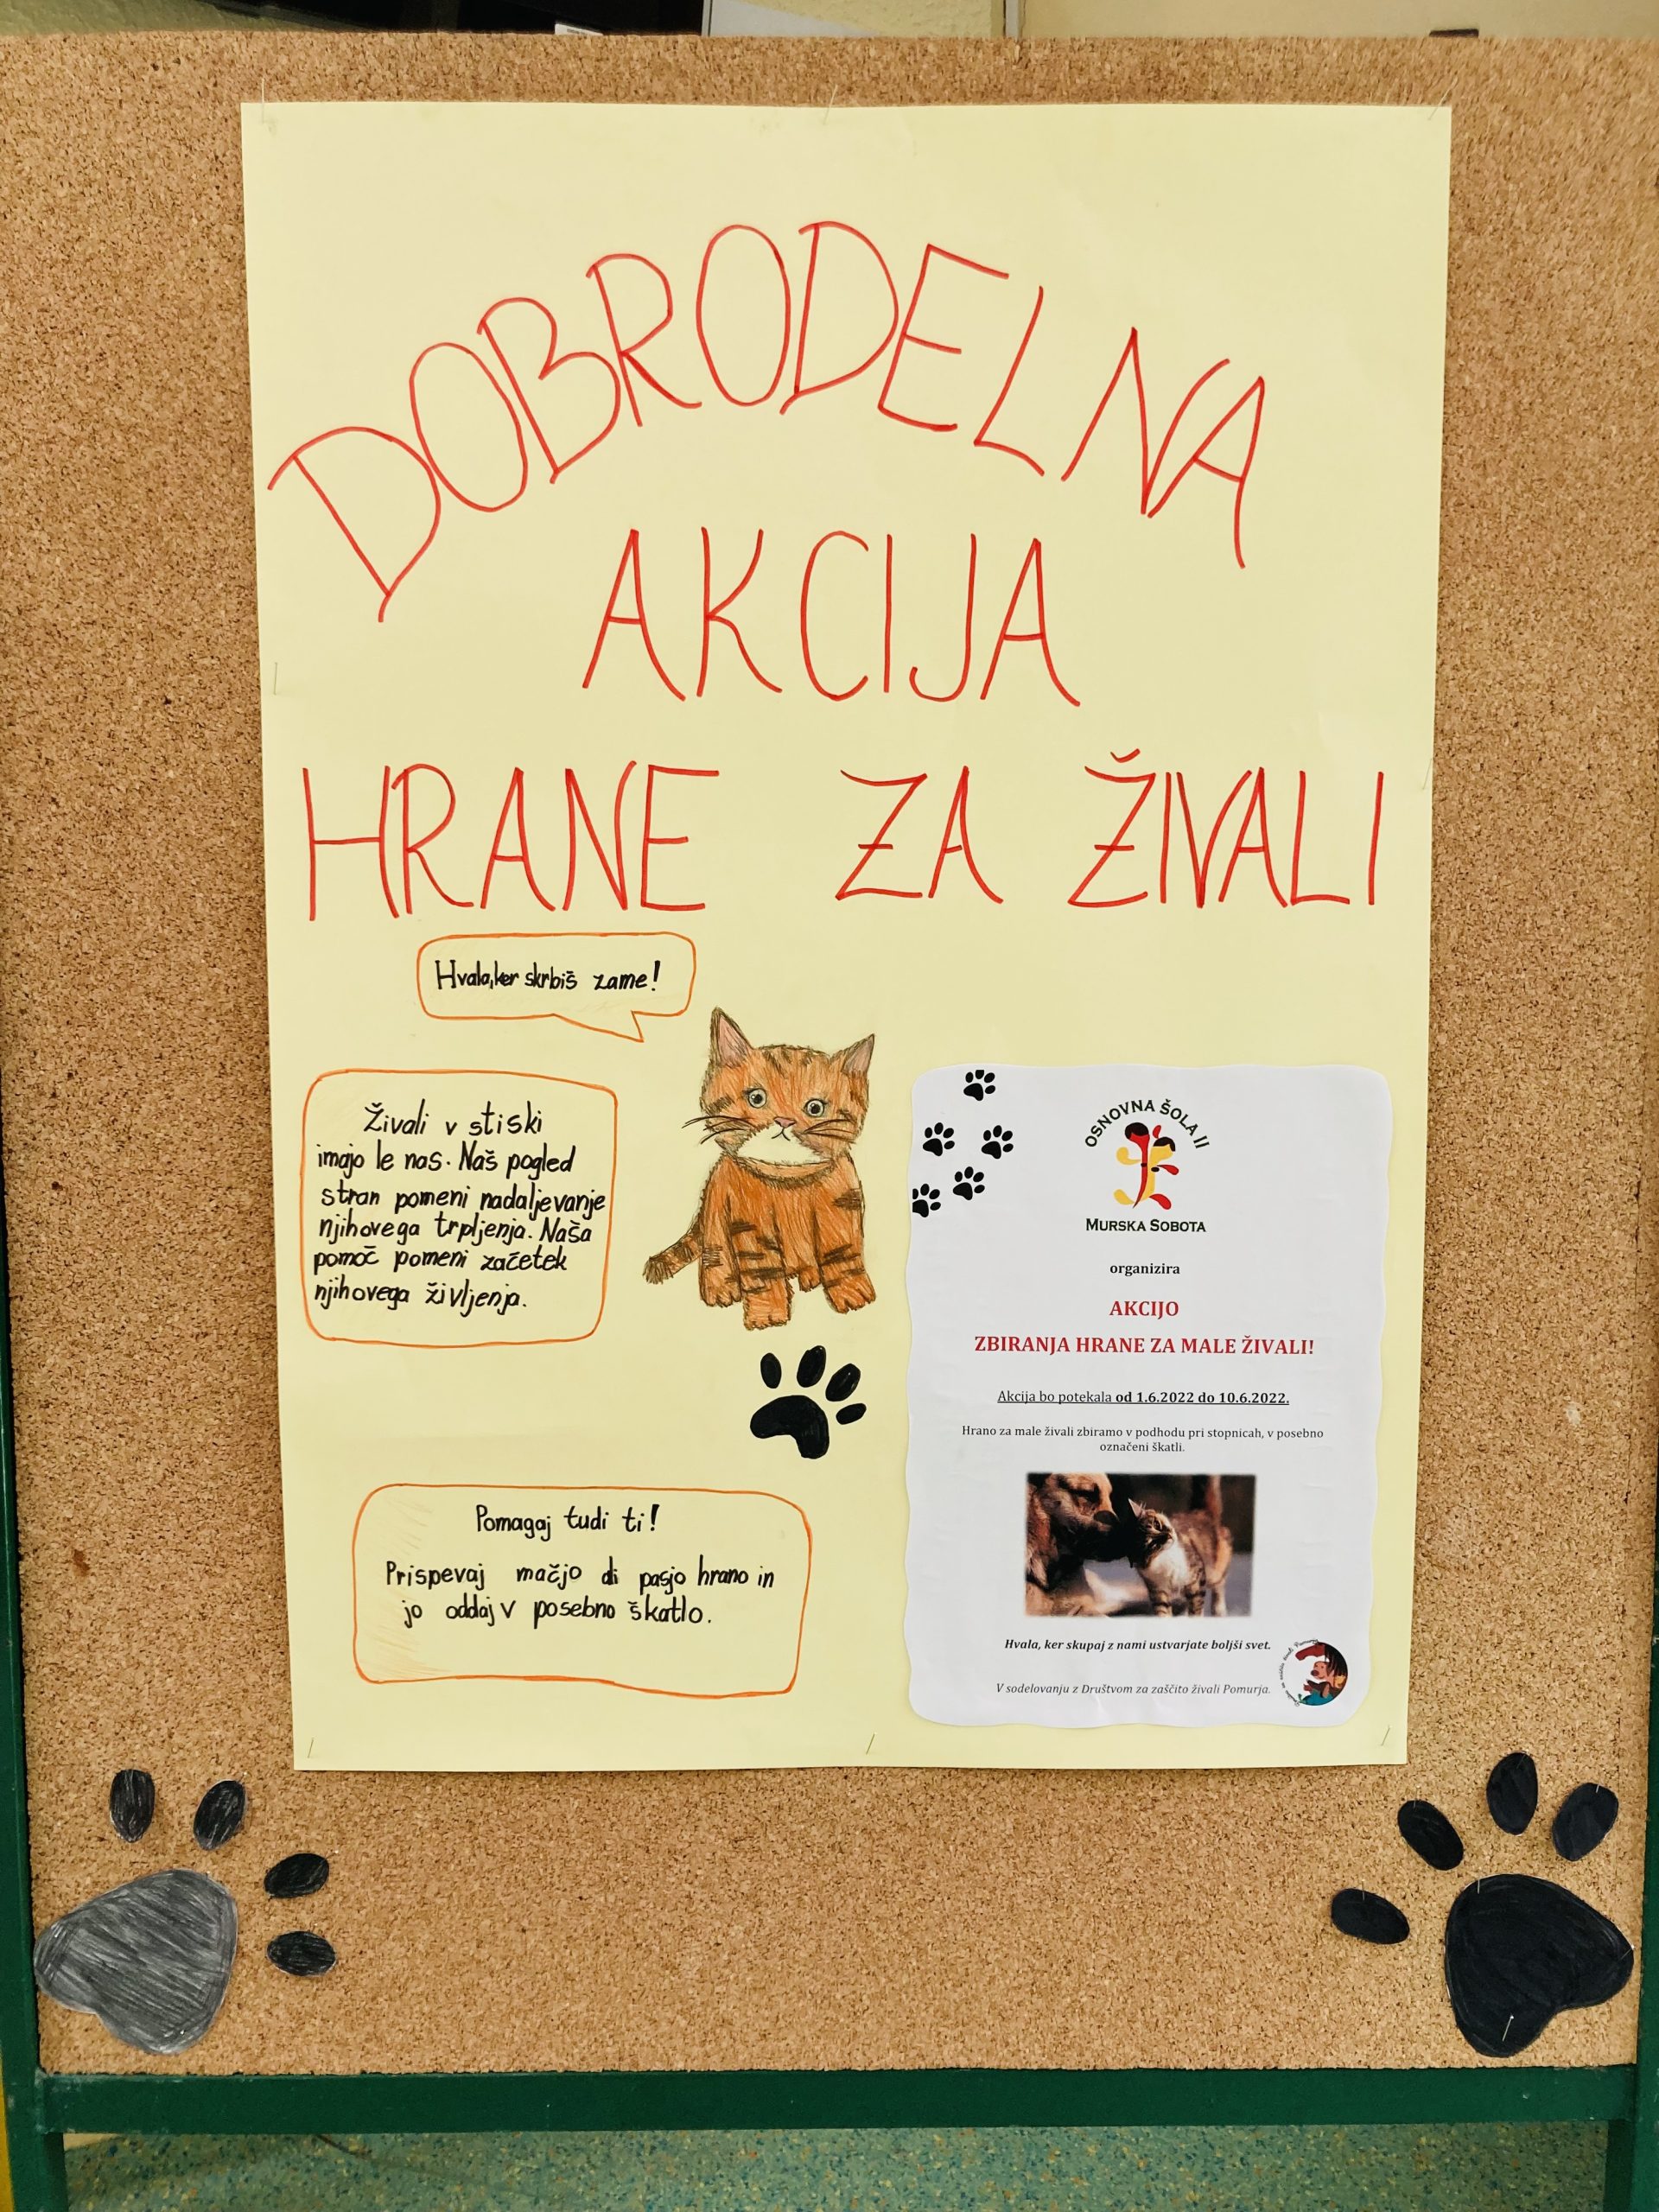 DOBRODELNA
AKCIJA
HRANE ZA ŽIVALI
Hvala,ker skrbiš zame!
Živali v stiski
imajo le nas. Naš pogled
stran pomeni nadaljevanje
njihovega trpljenja. Naša
pomoč pomeni začetek
njihovega življenja.
Pomagaj tudi ti!
Prispevaj mačjo di pasjo hrano in
jo oddaj v posebno škatlo.
OSNOVNA ŠOLA II
MURSKA SOBOTA
organizira
AKCIJO
ZBIRANJA HRANE ZA MALE ŽIVALI!
Akcija bo potekala od 1.6.2022 do 10.6.2022.
Hrano za male živali zbiramo v podhodu pri stopnicah, v posebno
označeni škatli.
Hvala, ker skupaj z nami ustvarjate boljši svet.
V sodelovanju z Društvom za zaščito živali Pomurja.